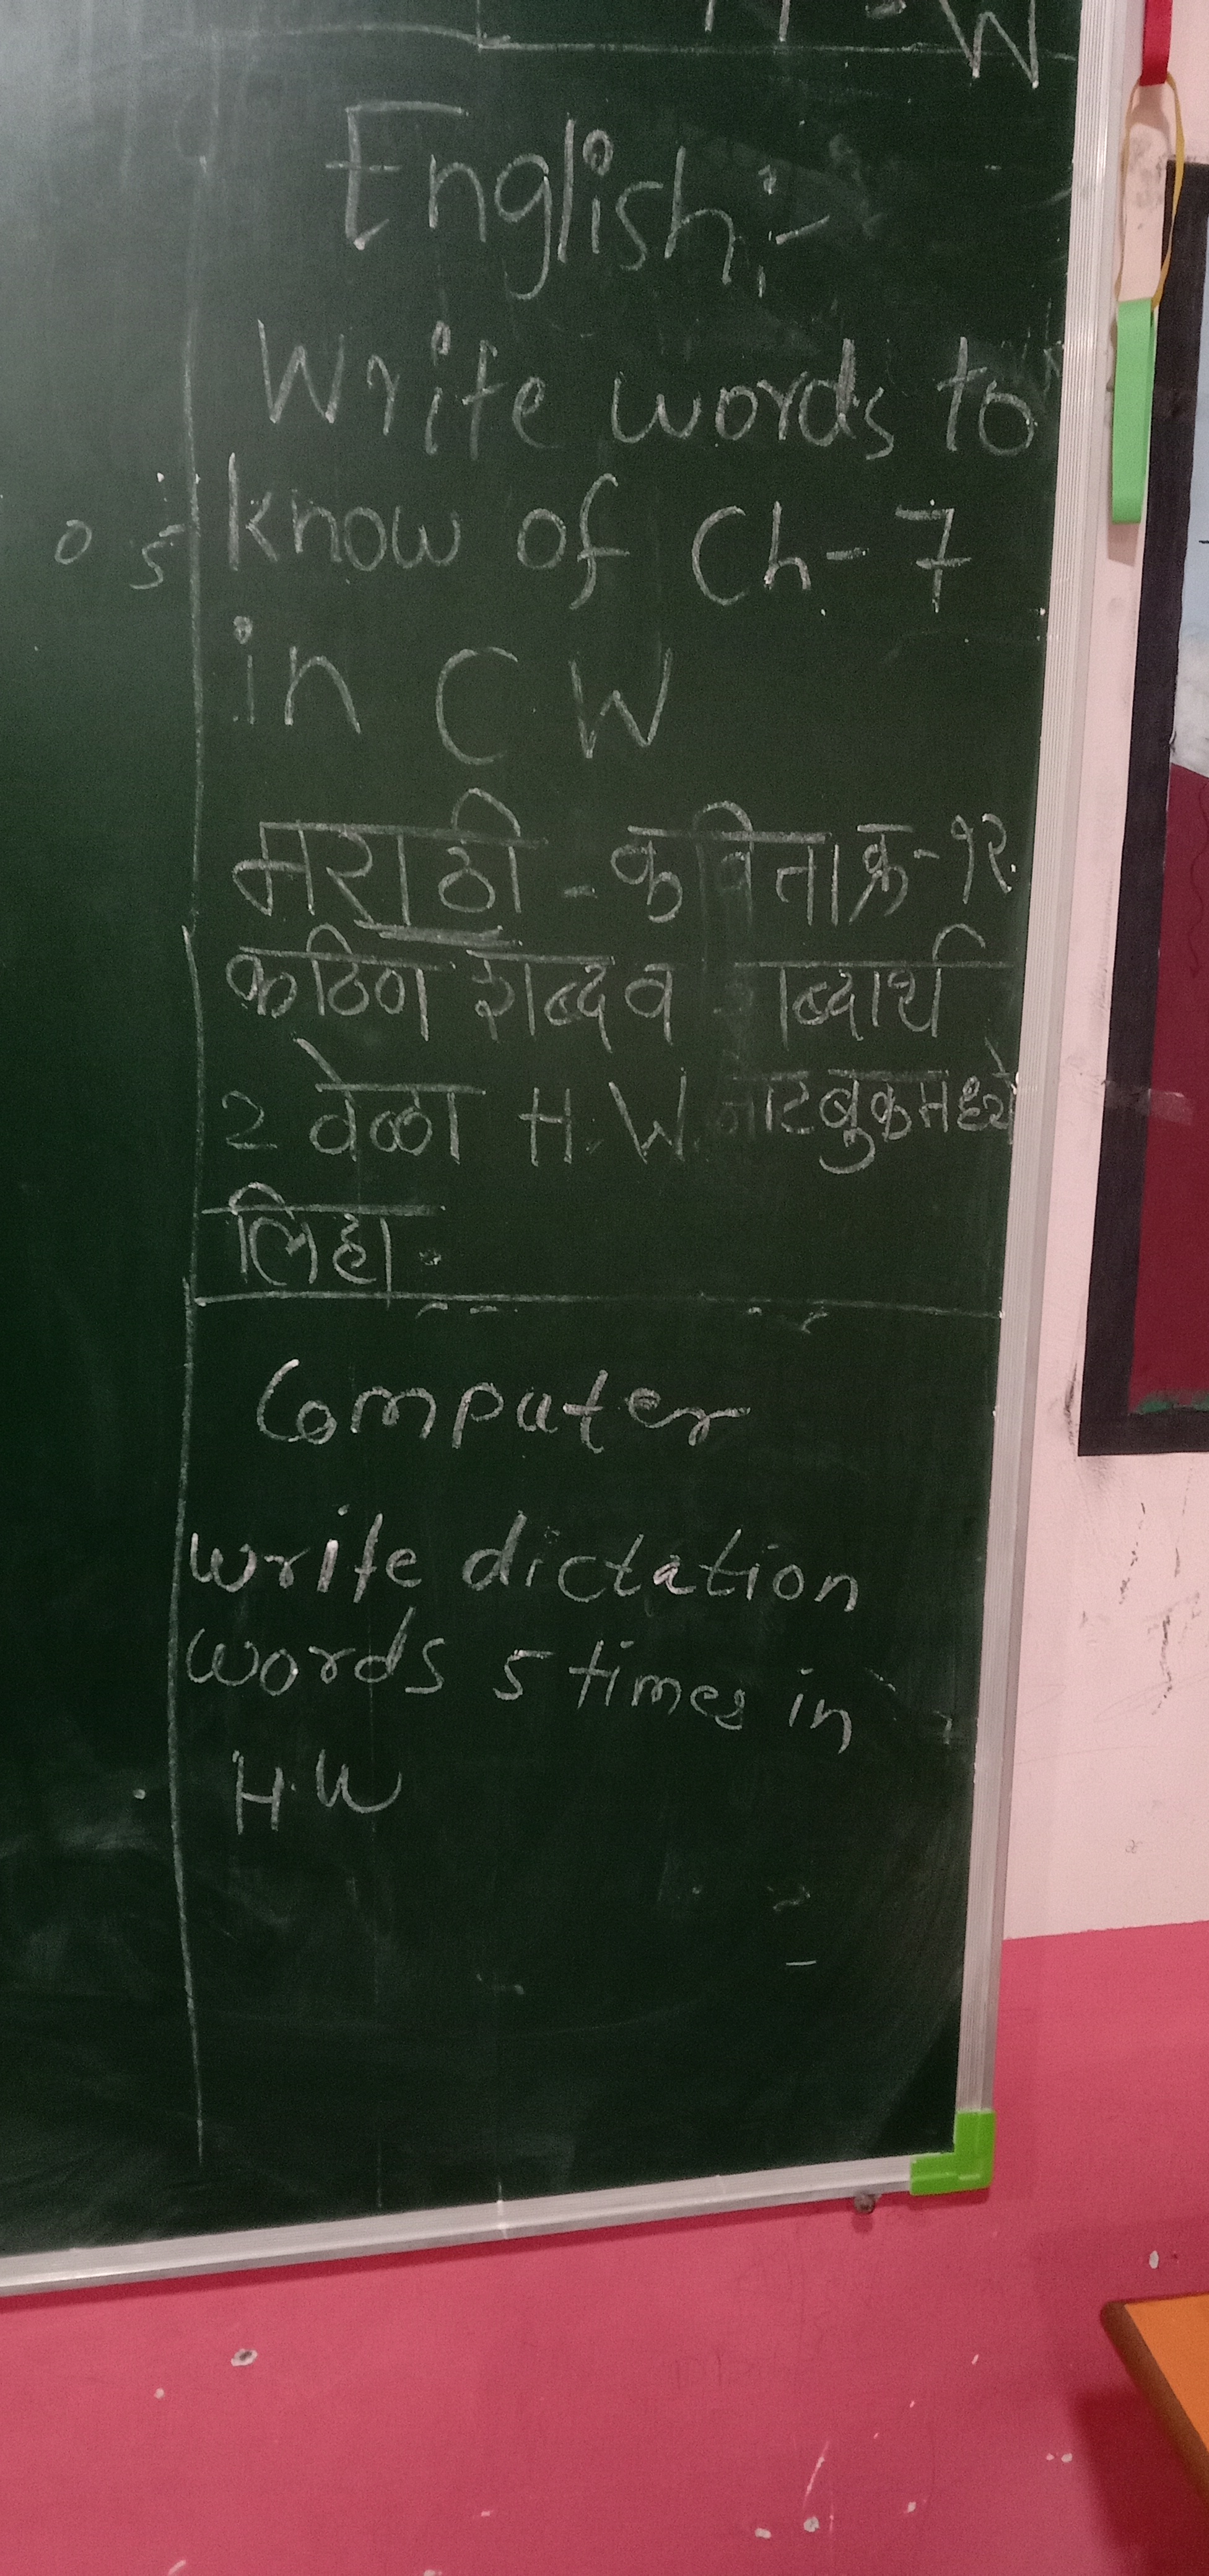 H.W
English:-
Write words to
know of Ch-7
in CW
मराठी - कविता क्र-१२
कठिण शब्द व
2 वेळा H.W.
लिहा.
Computer
write dictation
words 5 times in
H.W